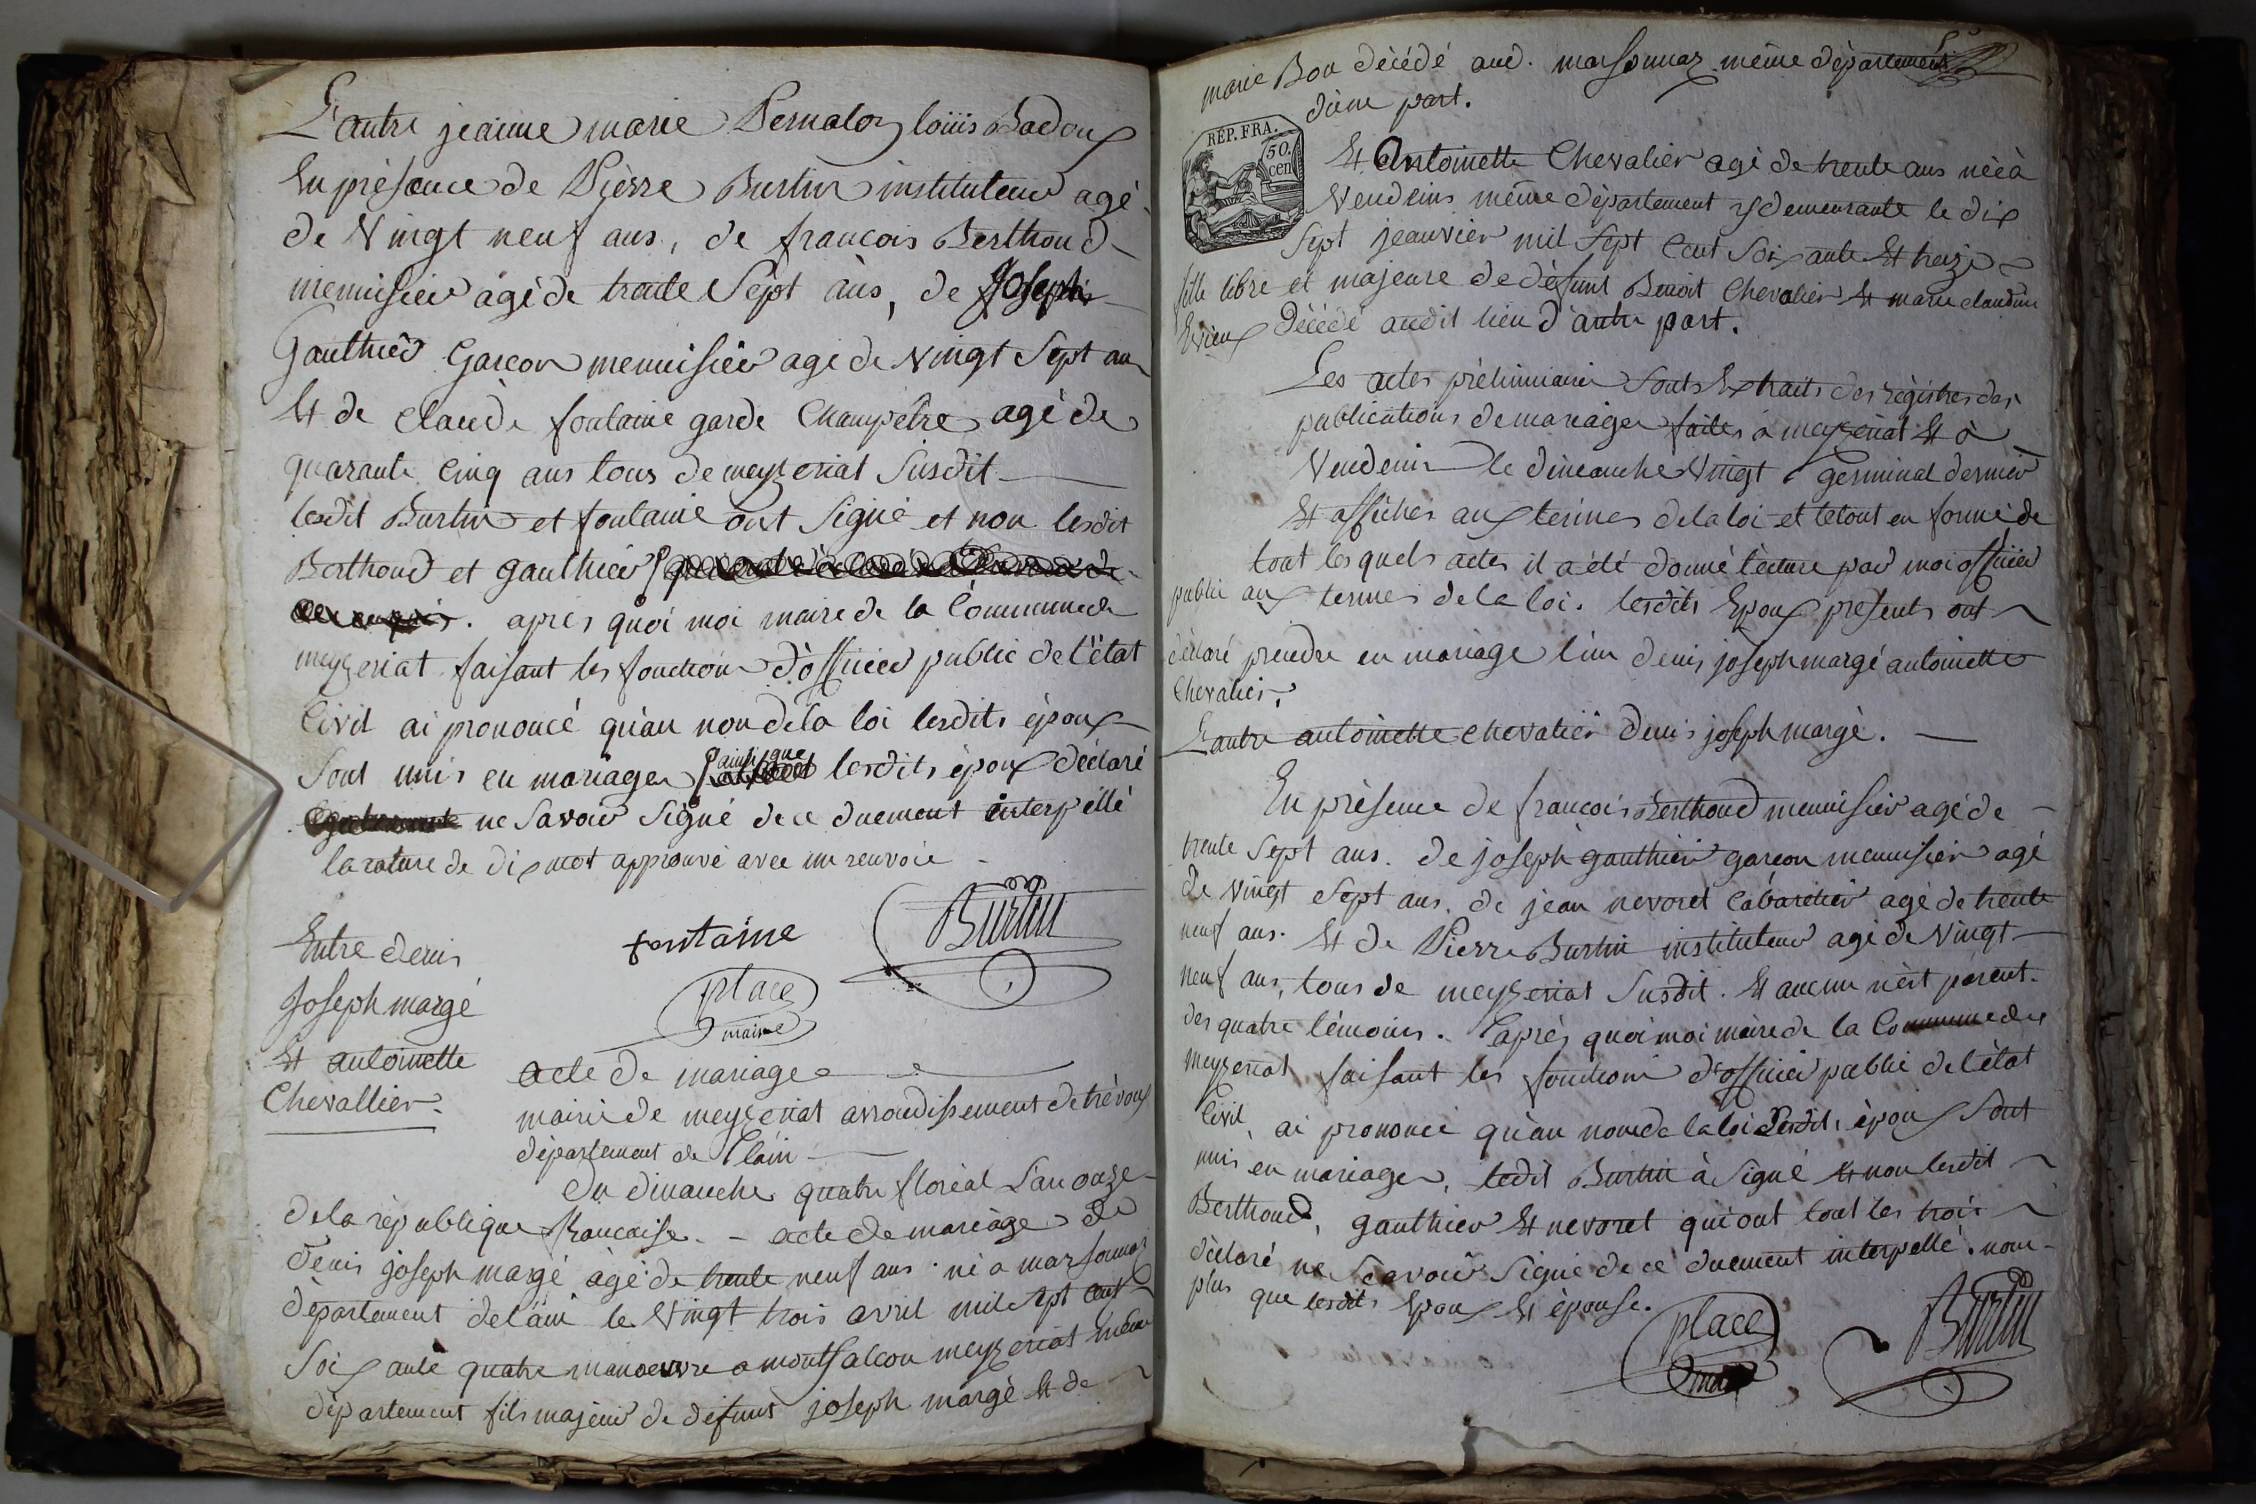 L'autre jeanne marie Pernalon louis Badoux
En présence de Pièrre Burtin instituteur agé
de Vingt neuf ans, de francois Berthoud
menuisier agé de trente Sept ans, de Joseph
Gauthier Garcon menuisier agé de Vingt Sept an
Et de claude fontaine garde Champêtre agé de
quarante Cinq ans tous de meyzeriat Susdit
lesdit Burtin et fontaine ont Signé et non lesdit
Berthoud et gauthier
après quoi moi maire de la Commune de
meyzeriat faisant les fonction d'officier public de l'état
Civil ai prononcé qu'au non de la loi lesdits époux
Sont unis en mariages ainsi que lesdits époux déclaré
ne Savoir Signé de ce duement interpéllé
la rature de dix mot approuvé avec un renvoie
fontaine Burtin
place
maire
Entre denis
Joseph margé
Et antoinette
Chevallier.
acte de mariage
mairie de meyzeriat arrondissement de trévoux
département de l'ain
du dimanche quatre floréal l'an onze
de la république francaise. - acte de mariage de
denis joseph margé agé de trente neuf ans né a marsonnaz
département de l'ain le Vingt trois avril mil sept cent
Soixante quatre manoeuvre a montfalcon meyzeriat même
département fils majeur de défunt joseph margé Et de
marie Bon décédé aud. marsonnaz même département
d'une part.
RÉP. FRA.
50.
cen
Et Antoinette Chevalier agé de trente ans néé à
Vendeins même département y demeurante le dix
Sept jeanvier mil Sept Cent Soixante Et treize
fille libre et majeure de défunt Benoit Chevalier Et marie claudine
décédé audit lieu d'autre part.
Les actes préliminaire Sont Extraits des régistres des
publications de mariages faites a meyzeriat Et à
Vendeins le dimanche Vingt germinal dernier
Et affiches aux termes de la loi et le tout en forme de
tout les quels actes il a été donné lécture par moi officier
public aux termes de la loi. lesdits Epoux présents ont
déclaré prendre en mariage l'un denis joseph margé antoinette
Chevalier,
L'autre antoinette chevalier denis joseph margé.
En présence de francois Berthoud menuisier agé de
trente Sept ans. de joseph gauthier garcon menuisier agé
de Vingt Sept ans. de jean nevoret Cabaretier agé de trente
neuf ans. Et de Pierre Burtin instituteur agé de Vingt
neuf ans, tous de meyzeriat Susdit. Et aucun n'est parent
des quatre témoins. après quoi moi maire de la Commune de
meyzeriat faisant les fonctions d'officier public de l'état
Civil, ai prononcé qu'au nom de la loi lesdits époux Sont
unis en mariages, ledit Burtin à Signé Et non lesdit
Berthoud, gauthier Et nevoret qui ont tout les trois
déclaré ne Scavoir Signé de ce duement interpellé. non
plus que lesdits Epoux Et épouse.
place Burtin